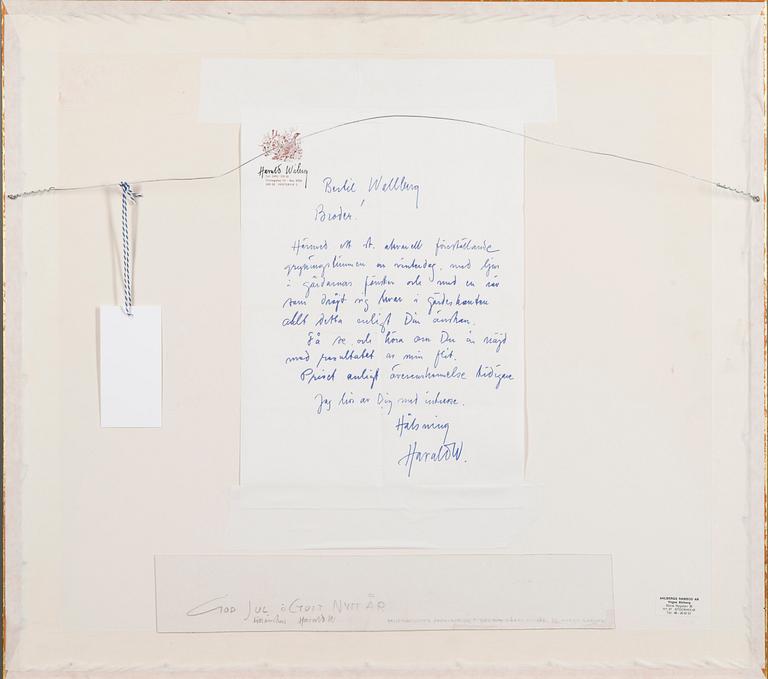 Harald Wiberg
Bertil Wallberg
Broder!
Härmed ett st. akvarell föreställande
gryningstimmen en vinterdag, med ljus
i gårdarnas fönster och med en räv
som dröjt sig kvar i gärdeskanten
allt detta enligt Din önskan.
Få se och höra om Du är nöjd
med resultatet av min flit.
Priset enligt överenskommelse tidigare
Jag hör av Dig med intresse.
Hälsning
Harald W.
GOD JUL o GOTT NYTT ÅR
Harald W
AHLBERGS RAMBOD AB